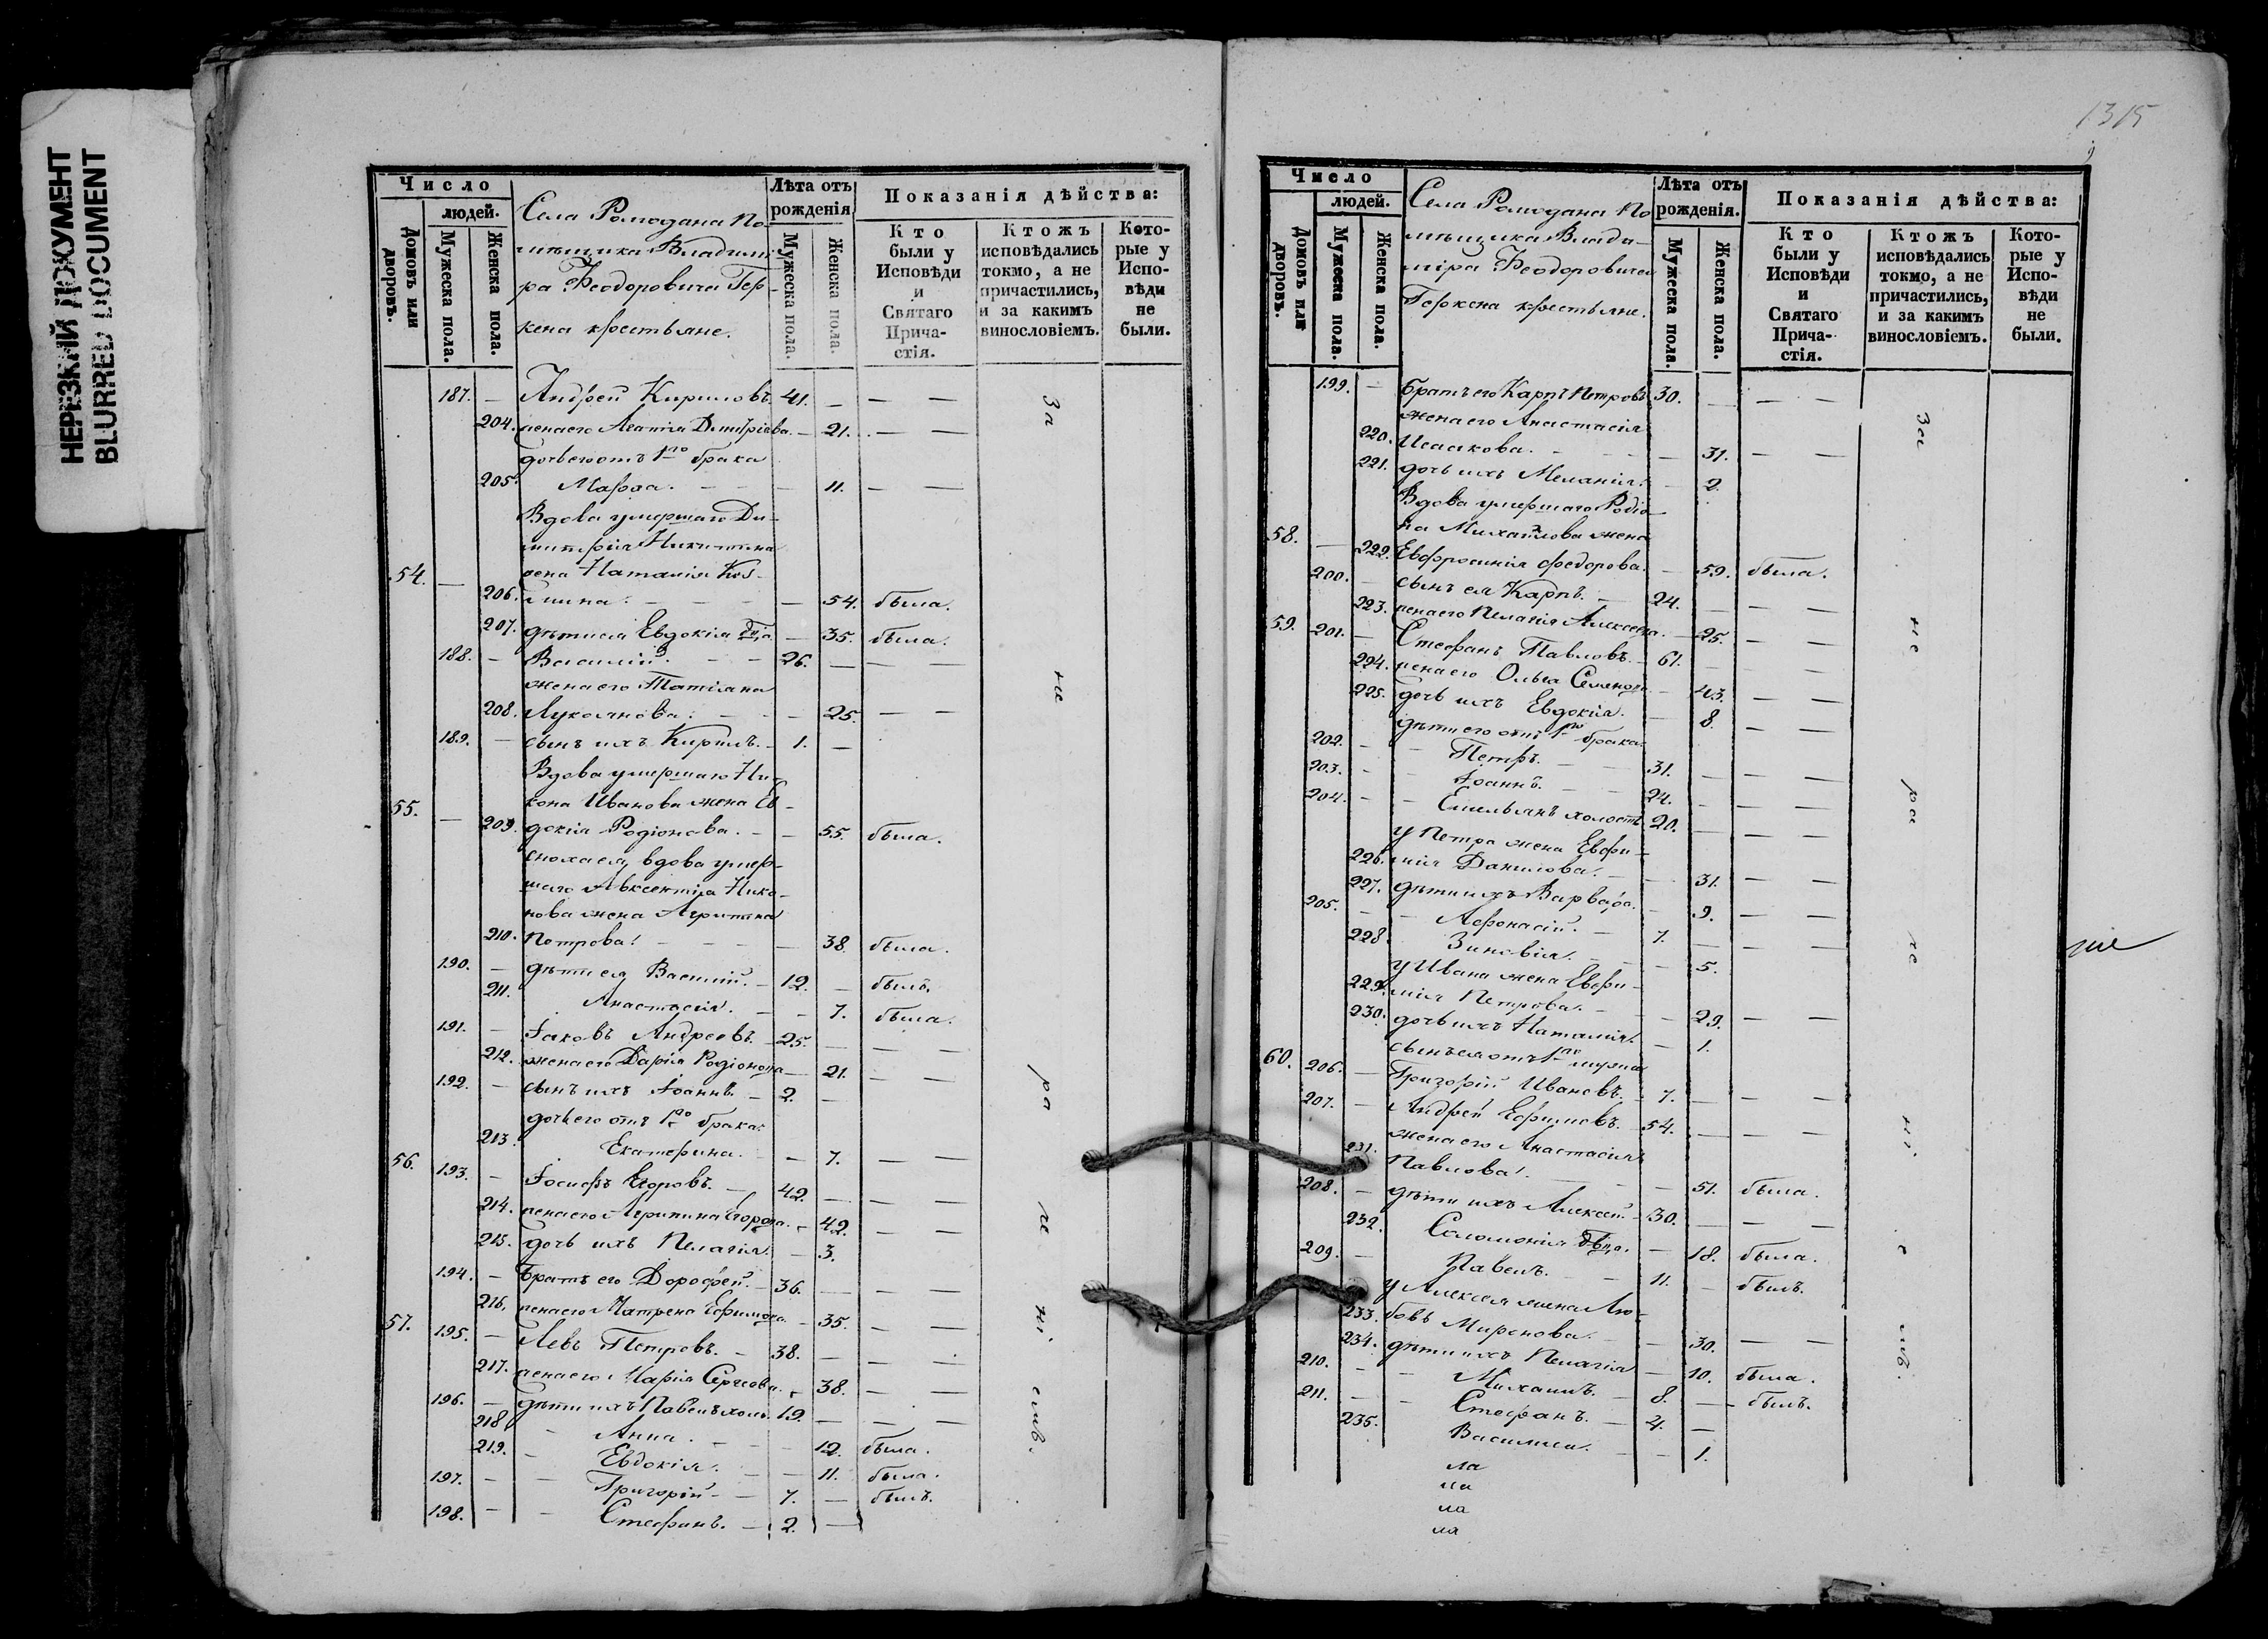 НЕРЕЗКИЙ ДОКУМЕНТ
BLURRED DOCUMENT
Число
людей.
Домовъ или дворовъ.
Мужеска пола.
Женска пола.
Села Ромодана По-
мѣщика Владими-
ра Ѳеодоровича Гер-
кена крестьяне.
Лѣта отъ рожденія
Мужеска пола.
Женска пола.
Показанія дѣйства:
Кто были у Исповѣди и Святаго Прича-стія.
Ктожъ исповѣдались токмо, а не причастились, и за какимъ винословіемъ.
Кото-рые у Испо-вѣди не были.
187. — Андрей Кириловъ 41. — — —
204. жена его Агапія Димитріева. — 21. — —
дочь его отъ 1го брака
205. Марѳа. — — 11. — —
Вдова умершаго Ди-
митрія Никитина
54. — жена Наталія Коз-
206. мина. — — 54. была.
207. дѣти ея Евдокія дѣв. — 35. была.
188. — Василій. — 26. — — —
жена его Татіана
208. Лукоянова. — — 25. — —
189. — сынъ ихъ Кирилъ. 1. —
Вдова умершаго Ни-
55. — кона Иванова жена Ев-
209. докія Родіонова. — — 55. была.
сноха ея, вдова умер-
шаго Авксентія Нико-
нова жена Агрипина
210. Петрова. — — 38. была.
190. — дѣти ея Василій. — 12. — былъ.
211. Анастасія. — — 7. была.
191. — Іаковъ Андреевъ. 25. — — —
212. жена его Дарія Родіонова — 21. — —
192. — сынъ ихъ Іоаннъ. — 2. —
дочь его отъ 1го брака
213. Екатерина. — — 7. — —
56. 193. — Іосифъ Егоровъ. — 42. — — —
214. жена его Агрипина Егорова. — 42. — —
215. дочь ихъ Пелагія. — 3.
194. — Братъ его Дороѳей. — 36. — — —
216. жена его Матрена Ефимова. — 35. — —
57. 195. — Левъ Петровъ. — 38. — — —
217. жена его Марія Сергеева. — 38. — —
196. — дѣти ихъ Павелъ холос. 19. — — —
218. — Анна. — — 12. была.
219. — Евдокія. — — 11. была.
197. — — Григорій — 7. — былъ.
198. — — Стефанъ. — 2. —
За не ра че ні емъ.
1315
Число
людей.
Домовъ или дворовъ.
Мужеска пола.
Женска пола.
Села Ромодана По
мѣщика Влади-
міра Ѳеодоровича
Геркена крестьяне.
Лѣта отъ рожденія.
Мужеска пола.
Женска пола.
Показанія дѣйства:
Кто были у Исповѣди и Святаго Прича-стія.
Ктожъ исповѣдались токмо, а не причастились, и за какимъ винословіемъ.
Кото-рые у Испо-вѣди не были.
199. — Братъ его Карпъ Петровъ 30. — — —
жена его Анастасія
220. Исаакова. — — 31. — —
221. дочь ихъ Меланія. — 2.
Вдова умершаго Родіо-
58. — на Михайлова жена
222. Евфросинія Федорова. — 59. была.
200. — сынъ ея Карпъ. — 24. — — —
223. жена его Пелагія Алексеева. — 25. — —
59. 201. — Стефанъ Павловъ. — 61. — — —
224. жена его Ольга Семенова — 43. — —
225. дочь ихъ Евдокія. — 8. — —
дѣти его отъ 1го брака
202. — — Петръ. — 31. — — —
203. — — Іоаннъ. — 24. — — —
204. — — Емельянъ холостъ 20. — — —
у Петра жена Евфи-
226. мія Данилова. — — 31. — —
227. дѣти ихъ Варвара. — 9. — —
205. — — Афонасій. — 7. — — —
228. Зиновія. — — 5.
у Ивана жена Евфи-
229. мія Петрова. — — 29. — —
230. дочь ихъ Наталія. — 1.
сынъ ея отъ 1го мужа
60. 206. — Григорій Ивановъ. — 7. — — —
207. — Андрей Ефимовъ. 54. — — —
жена его Анастасія
231. Павлова. — — 51. была.
208. — дѣти ихъ Алексей. — 30. — — —
232. Соломонія дѣвца. — 18. была.
209. — Павелъ. — 11. — былъ.
у Алексея жена Лю-
233. бовь Миронова. — — 30. — —
234. дѣти ихъ Пелагія — 10. была.
210. — — Михаилъ. — 8. — былъ.
211. — — Стефанъ. — 4. —
235. Василиса. — — 1.
За не ра че ні емъ.